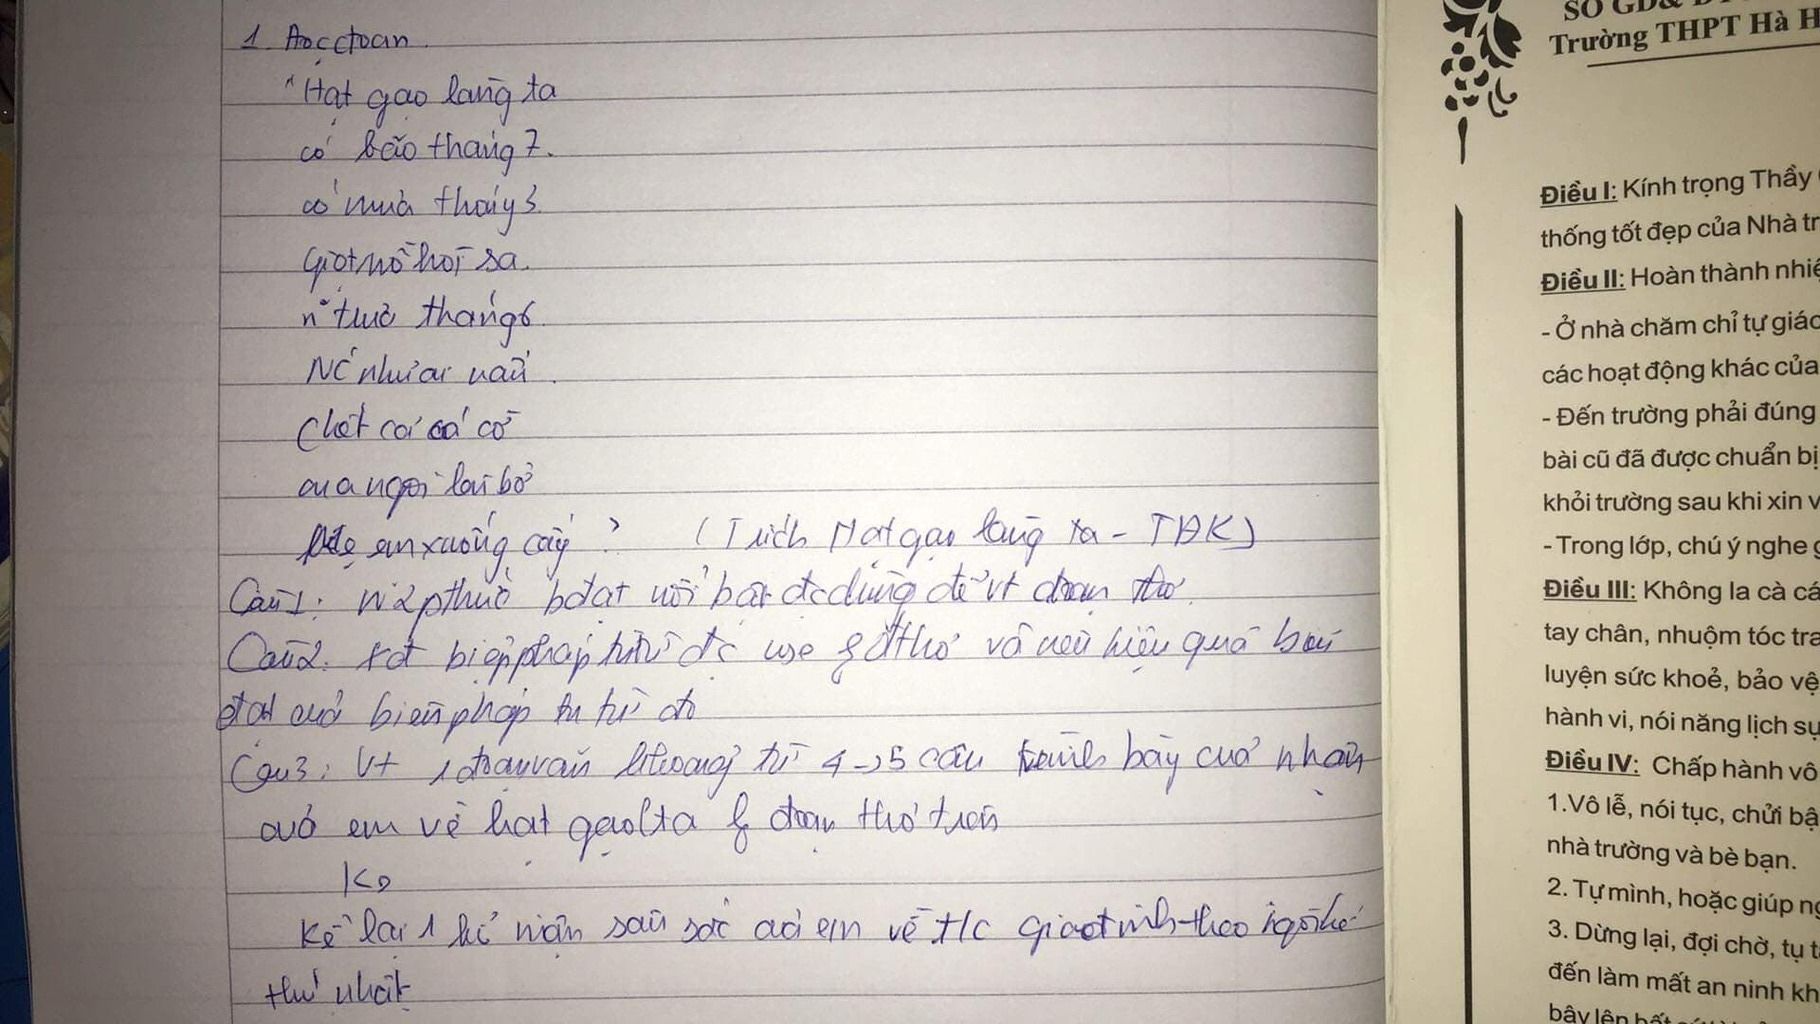 1. Đọc đoạn
"Hạt gạo làng ta
có bão tháng 7.
có mưa tháng 3.
Giọt mồ hôi sa.
tháng 6.
Nc như ai nấu.
Chết cả cá cờ
cua ngoi lên bờ
Mẹ em xuống cấy" (Trích Hạt gạo làng ta - TĐK)
Câu 1: N 2 pthức bđạt nổi bật đc dùng để vt đoạn thơ.
Câu 2: biện pháp tu từ đc use thơ và nêu hiệu quả biểu
đạt của biện pháp tu từ đó
Câu 3: Vt 1 đoạn văn từ 4 -> 5 câu trình bày của nhận
của em về hạt gạo l ta đoạn thơ trên
Kể lại 1 kỉ niệm sâu sắc của em về t/c gia đình theo ngôi kể
thứ nhất
SỞ GD&
Trường THPT Hà H
Điều I: Kính trọng Thầy
thống tốt đẹp của Nhà tr
Điều II: Hoàn thành nhiệ
- Ở nhà chăm chỉ tự giác
các hoạt động khác của
- Đến trường phải đúng
bài cũ đã được chuẩn bị
khỏi trường sau khi xin v
- Trong lớp, chú ý nghe g
Điều III: Không la cà cá
tay chân, nhuộm tóc tra
luyện sức khoẻ, bảo vệ
hành vi, nói năng lịch sự
Điều IV: Chấp hành vô
1.Vô lễ, nói tục, chửi bậ
nhà trường và bè bạn.
2. Tự mình, hoặc giúp ng
3. Dừng lại, đợi chờ, tụ t
đến làm mất an ninh kh